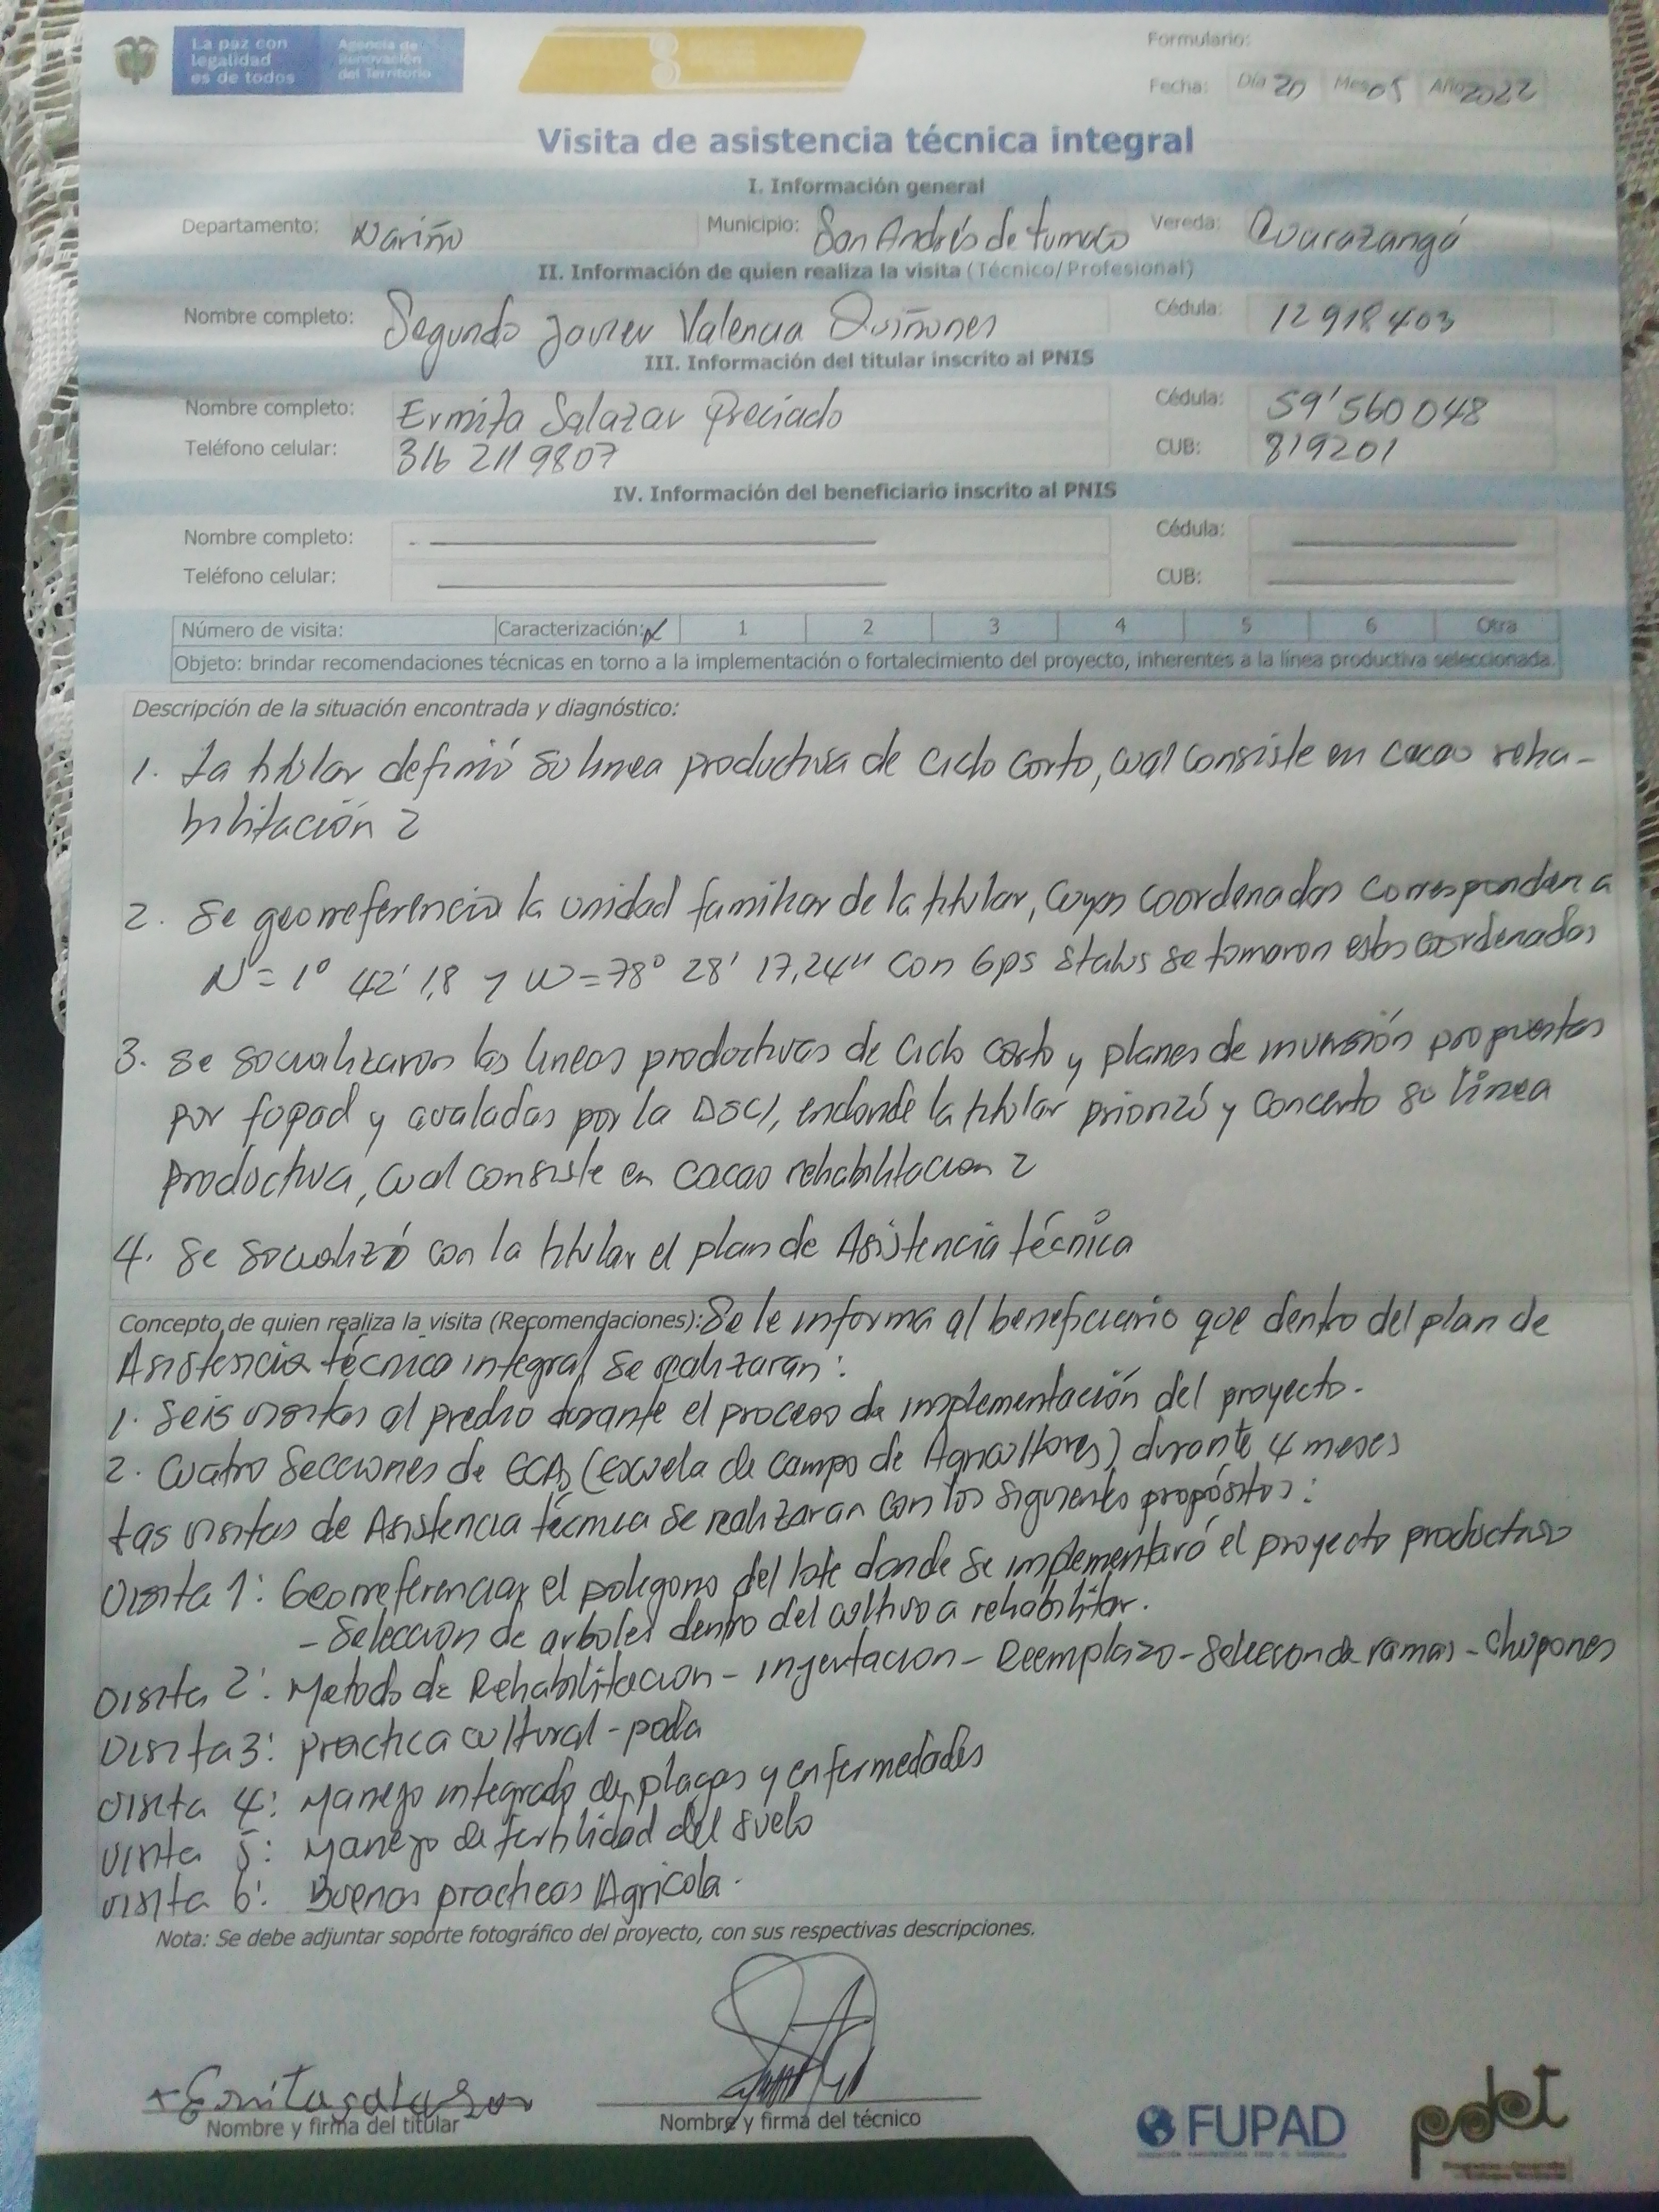 La paz con
legalidad
es de todos
Agencia de
Renovación
del Territorio
Formulario:
Fecha: Día 20 Mes 05 Año 2022
Visita de asistencia técnica integral
I. Información general
Departamento: Nariño Municipio: San Andrés de tumaco Vereda:
II. Información de quien realiza la visita (Técnico/Profesional)
Nombre completo: Segundo Javier Valencia Quiñones Cédula: 12918403
III. Información del titular inscrito al PNIS
Nombre completo: Ermita Salazar Preciado Cédula: 59'560048
Teléfono celular: 316 2119807 CUB: 819201
IV. Información del beneficiario inscrito al PNIS
Nombre completo: Cédula:
Teléfono celular: CUB:
Número de visita: Caracterización: X 1 2 3 4 5 6 Otra
Objeto: brindar recomendaciones técnicas en torno a la implementación o fortalecimiento del proyecto, inherentes a la línea productiva seleccionada.
Descripción de la situación encontrada y diagnóstico:
1. La titular definió su linea productiva de ciclo corto, cual consiste en cacao reha-
bilitación 2
2. Se georreferencio la unidad familiar de la titular, cuyas coordenadas corresponden a
N=1° 42' 1,8 y W=78° 28' 17,24" con Gps status se tomaron estas coordenadas
3. Se socializaron las lineas productivas de ciclo corto y planes de inversión propuestas
por fupad y avaladas por la DSCI, endonde la titular priorizó y concerto su linea
productiva, cual consiste en cacao rehabilitacion 2
4. Se socializó con la titular el plan de Asistencia técnica
Concepto de quien realiza la visita (Recomendaciones): Se le informa al beneficiario que dentro del plan de
Asistencia técnica integral se realizaran:
1. Seis visitas al predio durante el proceso de implementación del proyecto.
2. Cuatro Secciones de ECAs (Escuela de campo de Agricultores) durante 4 meses
Las visitas de Asistencia técnica se realizaran con los siguientes propósitos:
Visita 1: Georreferenciar el poligono del lote donde se implementará el proyecto productivo
- Seleccion de arboles dentro del cultivo a rehabilitar.
Visita 2: Metodo de Rehabilitacion - injertacion - Reemplazo - Seleccion de ramas - chupones
Visita 3: practica cultural - poda
Visita 4: Manejo integrado de plagas y enfermedades
Visita 5: Manejo de fertilidad del suelo
Visita 6: Buenas practicas Agricola.
Nota: Se debe adjuntar soporte fotográfico del proyecto, con sus respectivas descripciones.
Ermita salazar
Nombre y firma del titular Nombre y firma del técnico
FUPAD
pdet